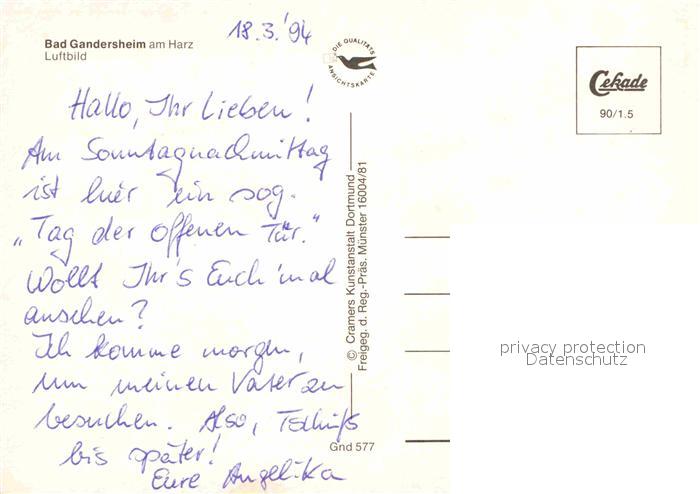 18.3.'94
Bad Gandersheim am Harz
Luftbild
DIE QUALITÄTS
ANSICHTSKARTE
Cekade
90/1.5
Hallo, Ihr Lieben!
Am Sonntagnachmittag
ist hier ein sog.
„Tag der offenen Tür."
Wollt Ihr's Euch 'mal
ansehen?
Ich komme morgen,
um meinen Vater zu
besuchen. Also, Tschüß
bis später!
Eure Angelika
© Cramers Kunstanstalt Dortmund
Freigeg. d. Reg.-Präs. Münster 16004/81
Gnd 577
privacy protection
Datenschutz